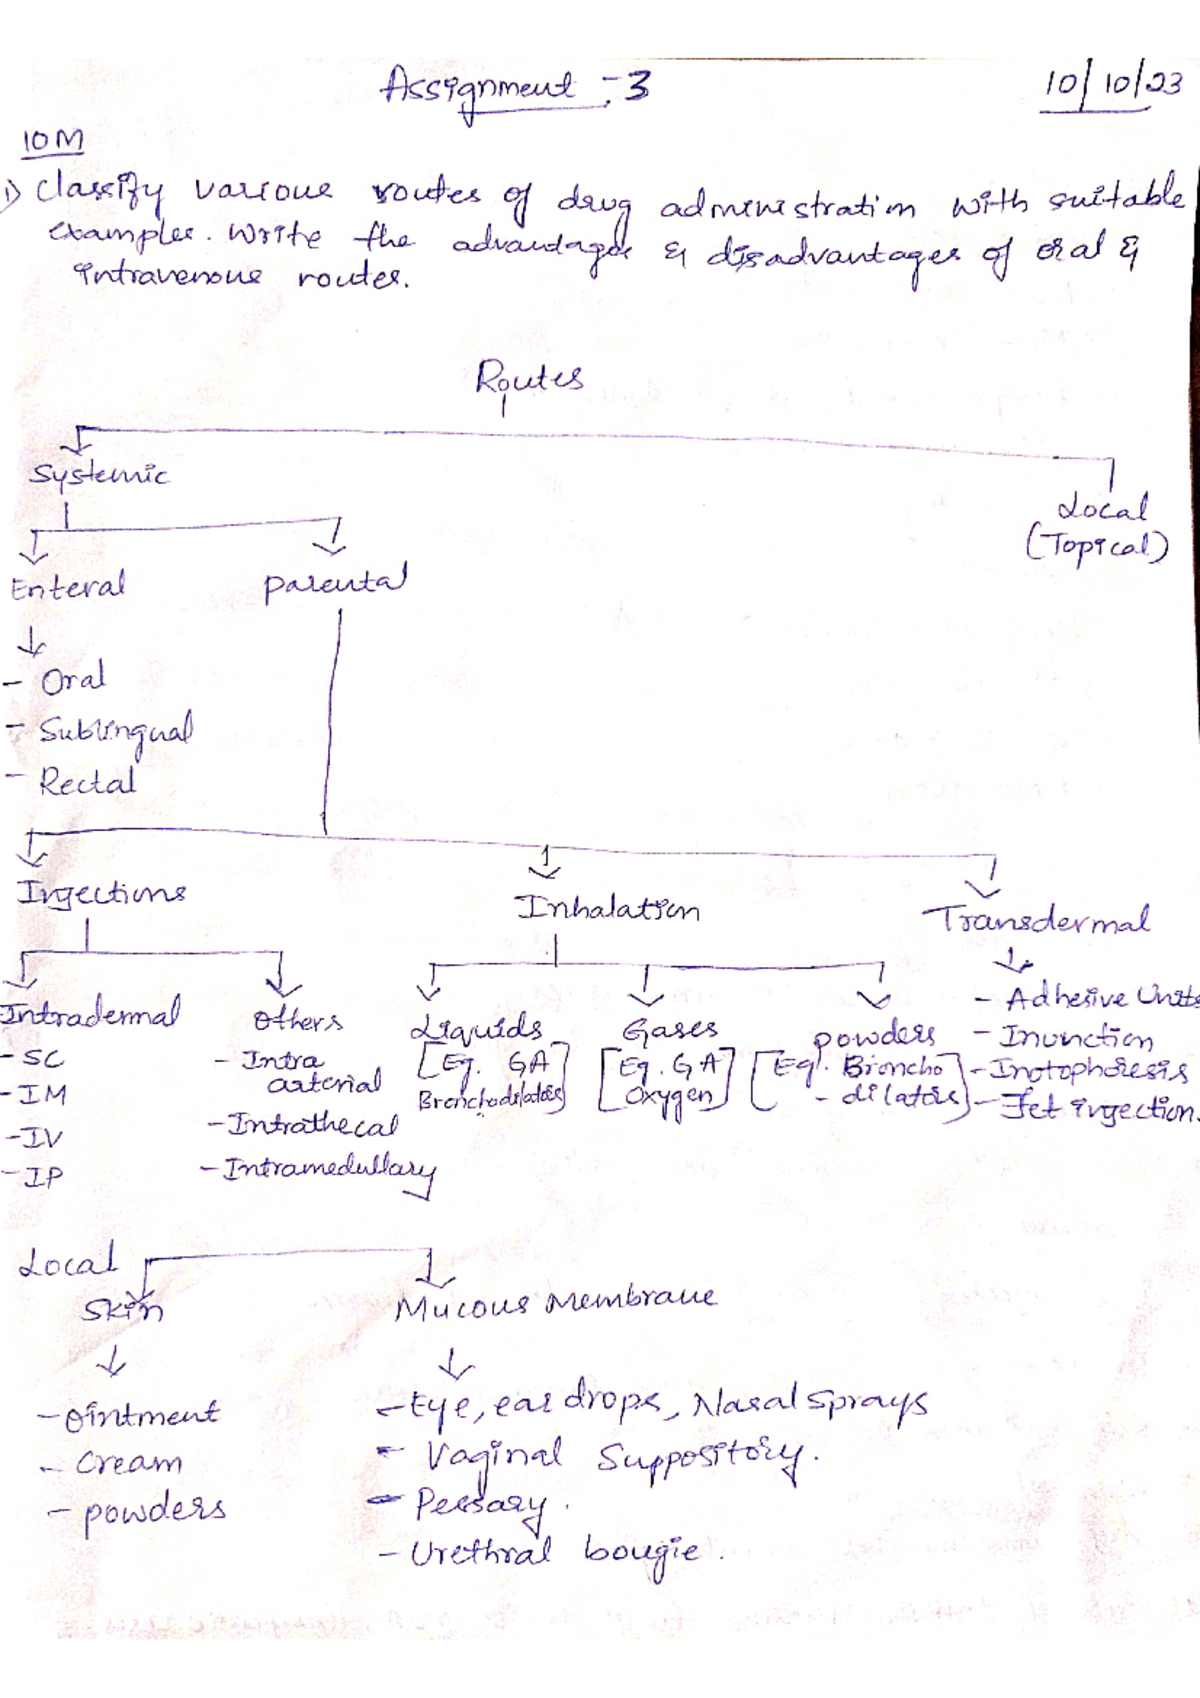 Assignment :- 3
10/10/23
10M
1) Classify various routes of drug administration with suitable
examples. Write the advantages & disadvantages of oral &
intravenous routes.
Routes
Systemic
Local
(Topical)
Enteral
parental
- Oral
- Sublingual
- Rectal
Injections
Inhalation
Transdermal
Intradermal
- SC
- IM
- IV
- IP
Others
- Intra
arterial
- Intrathecal
- Intramedullary
Liquids
[Eg. GA
Bronchodilators]
Gases
[Eg. GA
Oxygen]
powders
[Eg. Broncho
- dilators]
- Adhesive Units
- Inunction
- Inotophoresis
- Jet injection.
Local
Skin
Mucous Membrane
- Ointment
- Cream
- powders
- Eye, ear drops, Nasal Sprays
- Vaginal Suppository.
- Pessary.
- Urethral bougie.